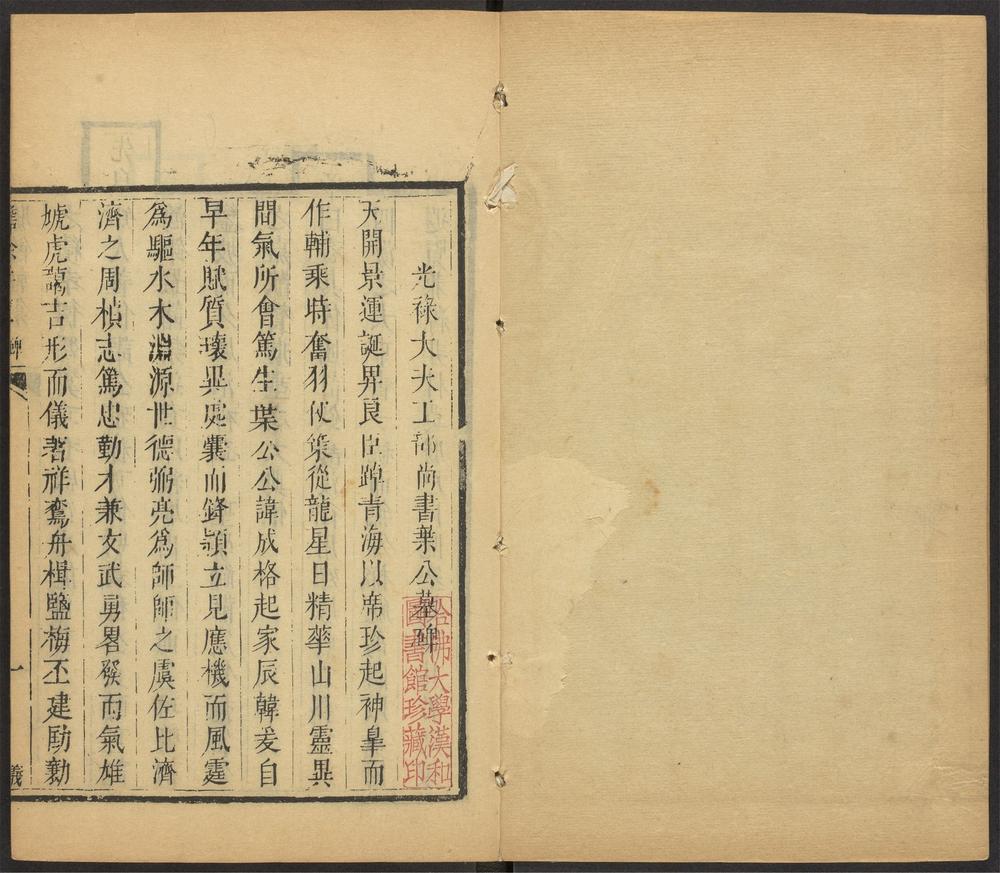 光祿大夫工部尚書葉公墓碑
天開景運誕畀良臣蹕青海以席珍起神皋而
作輔乘時奮羽仗䇿從龍星日精華山川靈異
間氣所會篤生葉公公諱成格起家辰韓爰自
早年賦質瓌異處囊而鋒頴立見應機而風霆
爲驅水木淵源世德弼亮爲師師之虞佐比濟
濟之周楨志篤忠勤才兼文武勇畧發而氣雄
虓虎藹吉形而儀著祥鸞舟楫鹽梅丕建勛勳
碑
一
義
哈佛大學漢和
圖書館珍藏印